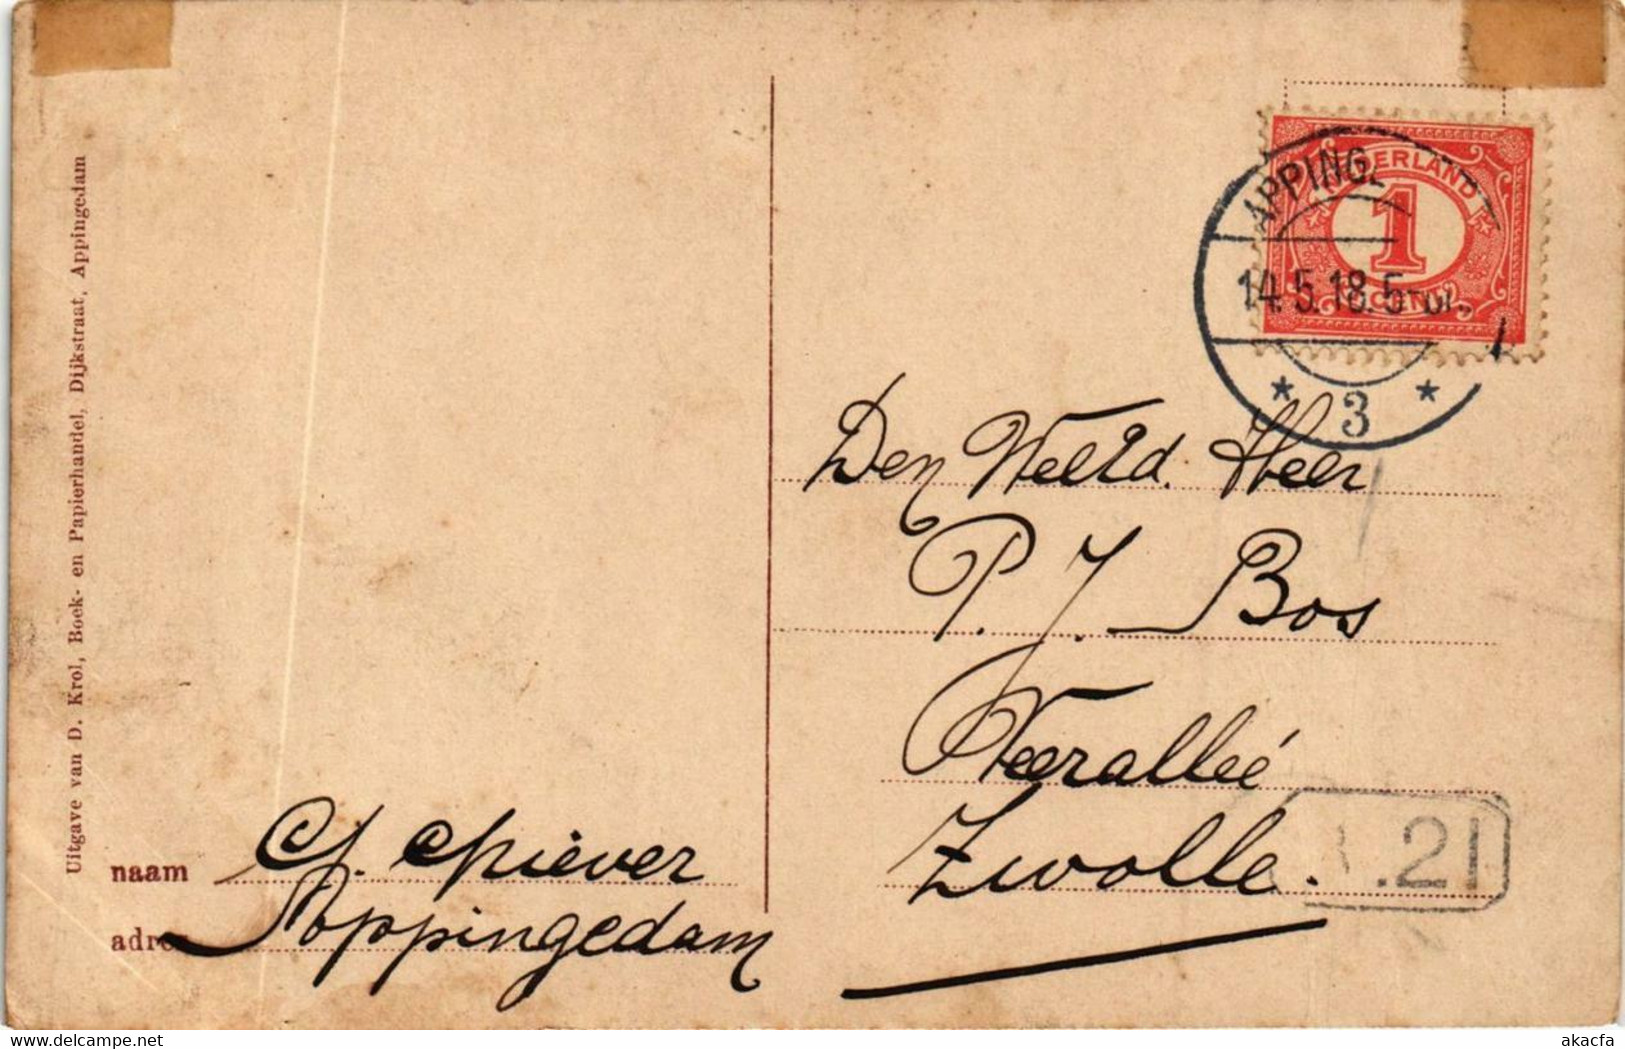 Uitgave van D. Krol, Boek- en Papierhandel, Dijkstraat, Appingedam
NEDERLAND
1
CENT
APPING
14.5.18.5
3
Den Weled. Heer
P. J. Bos
Veerallée
Zwolle.
.21
naam
adres Appingedam
delcampe.net
akacfa